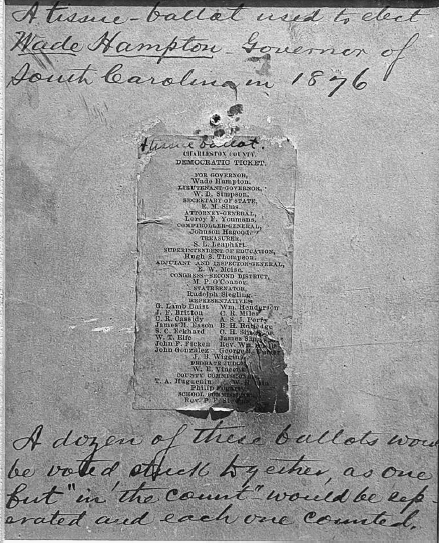 A tissue-ballot used to elect
Wade Hampton - Governor of
South Carolina in 1876
tissue ballot.
CHARLESTON COUNTY.
DEMOCRATIC TICKET.
FOR GOVERNOR,
Wade Hampton.
LIEUTENANT-GOVERNOR,
W. D. Simpson.
SECRETARY OF STATE,
R. M. Sims.
ATTORNEY-GENERAL,
Leroy F. Youmans.
COMPTROLLER-GENERAL,
Johnson Hagood.
TREASURER,
S. L. Leaphart.
SUPERINTENDENT OF EDUCATION,
Hugh S. Thompson.
ADJUTANT AND INSPECTOR-GENERAL,
E. W. Moise.
CONGRESS—SECOND DISTRICT,
M. P. O'Connor.
STATE SENATOR,
Rudolph Siegling.
REPRESENTATIVES,
G. Lamb Buist Wm. Henderson
J. F. Britton C. R. Miles
C. R. Cassidy A. S. J. Perry
James M. Eason B. H. Rutledge
S. C. Eckhard C. H.
W. T. Elfe James
John F. Ficken Rev. Wm.
John Gonzalez George
J. B. Wiggins
PROBATE JUDGE,
W. E. Vincent.
COUNTY
T. A. Huguenin W.
Philip
SCHOOL
Rev. P.
A dozen of these ballots would
be voted, stuck together, as one
but "in the count" would be sep-
arated and each one counted.